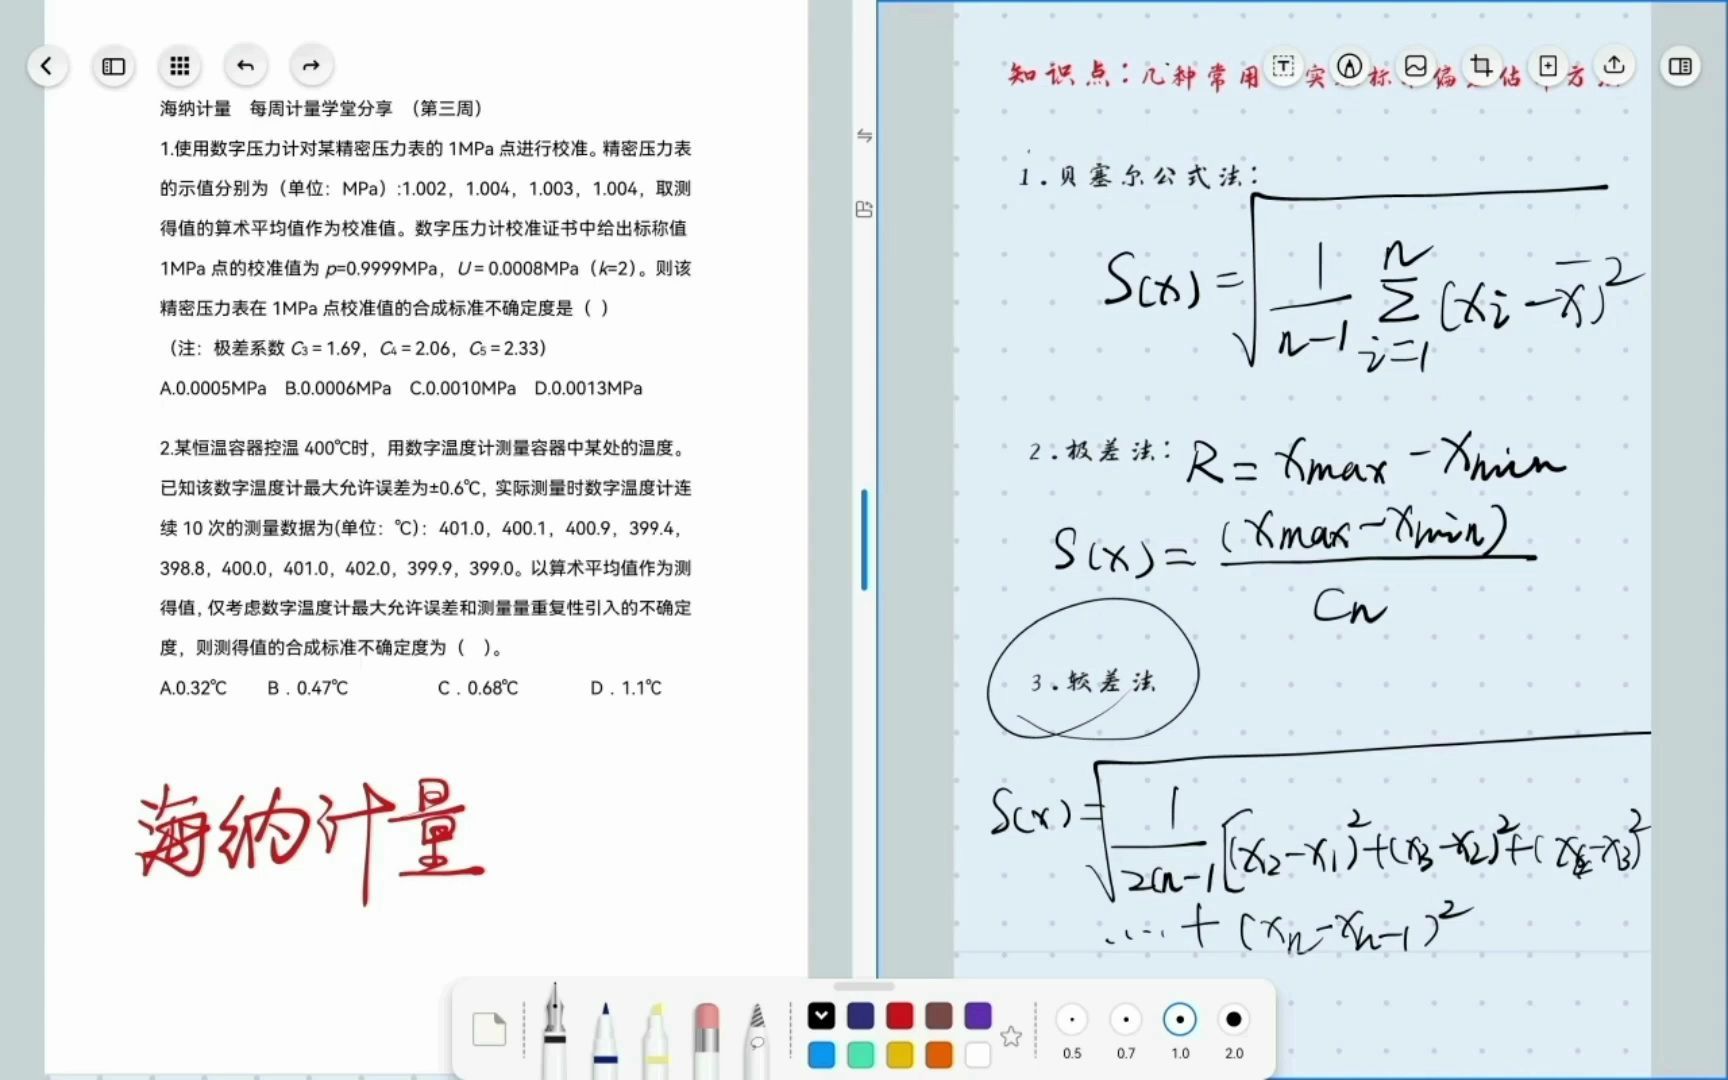 海纳计量 每周计量学堂分享 （第三周）
1.使用数字压力计对某精密压力表的 1MPa 点进行校准。精密压力表
的示值分别为（单位：MPa）:1.002，1.004，1.003，1.004，取测
得值的算术平均值作为校准值。数字压力计校准证书中给出标称值
1MPa 点的校准值为 p=0.9999MPa，U = 0.0008MPa（k=2）。则该
精密压力表在 1MPa 点校准值的合成标准不确定度是（ ）
（注：极差系数 C₃ = 1.69，C₄ = 2.06，C₅ = 2.33）
A.0.0005MPa B.0.0006MPa C.0.0010MPa D.0.0013MPa
2.某恒温容器控温 400℃时，用数字温度计测量容器中某处的温度。
已知该数字温度计最大允许误差为±0.6℃, 实际测量时数字温度计连
续 10 次的测量数据为(单位：℃)：401.0，400.1，400.9，399.4，
398.8，400.0，401.0，402.0，399.9，399.0。以算术平均值作为测
得值，仅考虑数字温度计最大允许误差和测量量重复性引入的不确定
度，则测得值的合成标准不确定度为（ ）。
A.0.32℃ B．0.47℃ C．0.68℃ D．1.1℃
海纳计量
知识点：几种常用 实 标 偏 估 方
1.贝塞尔公式法：
S(x) = √ 1/(n-1) Σ (xi - x̄)²
n
i=1
2.极差法：R = xmax - xmin
S(x) = (xmax - xmin) / Cn
3.较差法
S(x) = √ 1/2(n-1 [(x2-x1)²+(x3-x2)²+(x4-x3)²
..... + (xn-xn-1)²
0.5 0.7 1.0 2.0